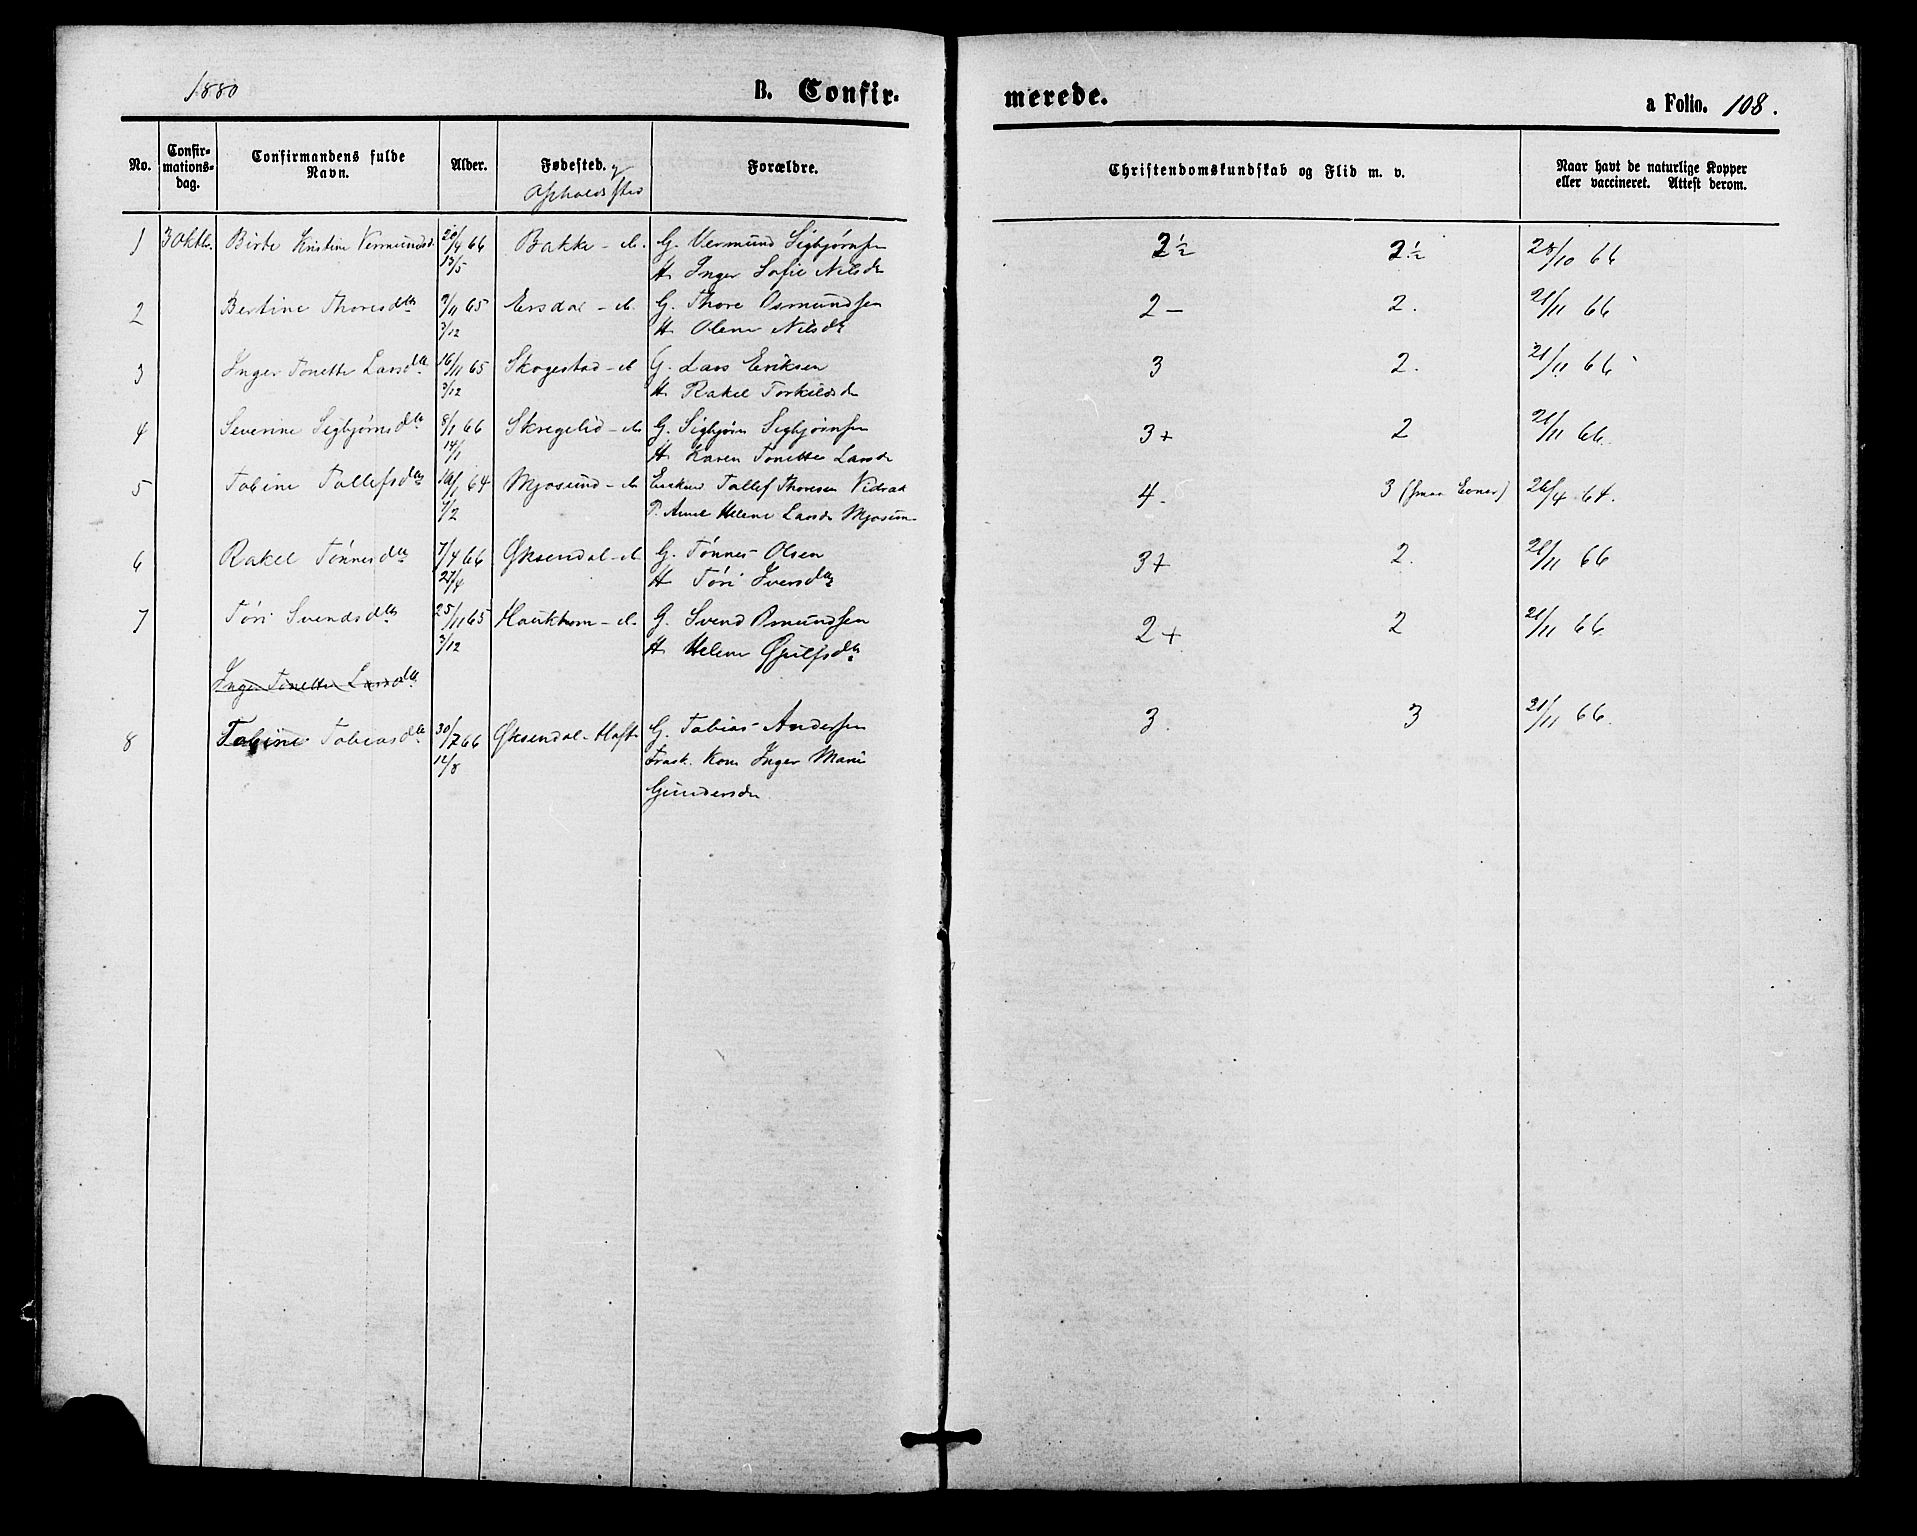 1880
B. Confir-
merede.
a Folio. 108.
No.
Confir-
mations-
dag.
Confirmandens fulde
Navn.
Alder.
Fødested. og
Opholdssted
Forældre.
Christendomskundskab og Flid m. v.
Naar havt de naturlige Kopper
eller vaccineret. Attest derom.
1 3 Oktb. Birte Kristine Vermundsd. 20/4 66 Bakke - G. Vermund Sigbjørnsen 2½ 2½ 28/10 66
13/5 H. Inger Sofie Nilsdr
2 Bertine Thoresdtr 9/11 65 Ersdal - G. Thore Osmundsen 2 - 2. 21/11 66
3/12 H. Olene Nilsdr
3 Inger Tonette Larsdtr 16/11 65 Skogestad - G. Lars Eriksen 3 2. 21/11 66
3/12 H. Rakel Torkildsdr
4 Severine Sigbjørnsdtr 8/1 66 Skregelid - G. Sigbjørn Sigbjørnsen 3+ 2 21/11 66.
14/1 H. Karen Tonette Larsdr
5 Tobine Tollefsdtr 64 Mjosund - Enkem Tollef Thoresen Vidrak 4- 3 (smaa Evner) 26/4 64.
7/2 P. Anne Helene Larsdr Mjosun
6 Rakel Tønnesdtr 7/4 66 Øksendal - G. Tønnes Olsen 3+ 2. 21/11 66
27/4 H. Tøri Iversdtr
7 Tøri Svendsdtr 25/11 65 Haukhom - G. Svend Osmundsen 2+ 2 21/11 66
3/12 H. Helene Ørjulfsdtr
Inger Tonette Larsdtr
8 Tobine Tobiasdtr 30/7 66 Øksendal - G. Tobias Andersen 3. 3 21/11 66.
12/8 Frask. Kone Inger Marie
Gundersdr